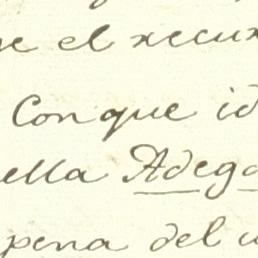 e el recur
Conque id
ella Adega
pena del